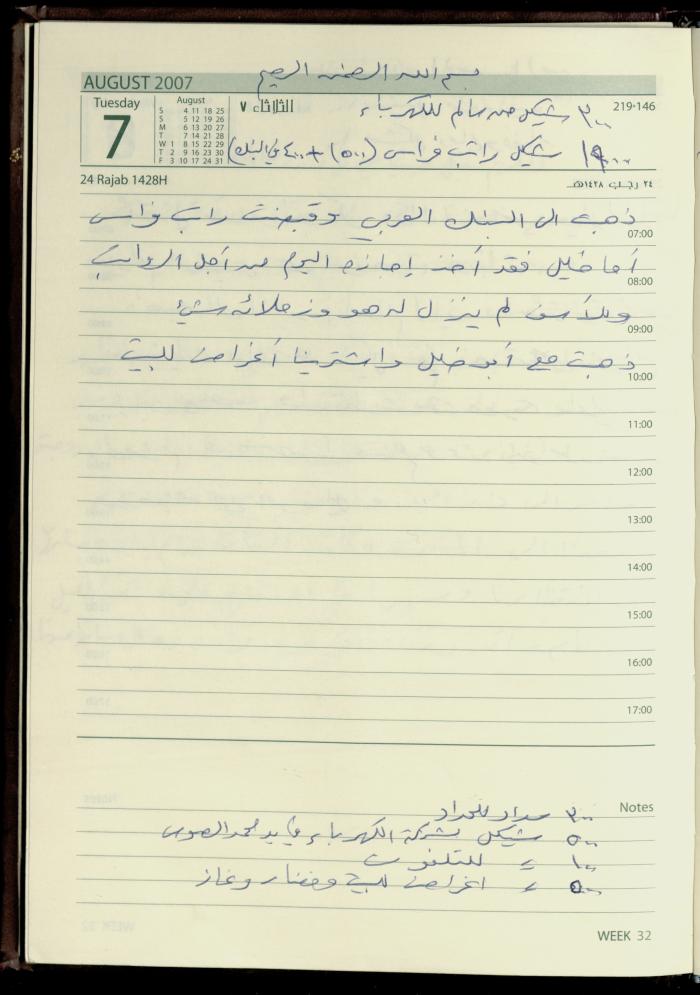 بسم الله الرحمن الرحيم
AUGUST 2007
Tuesday
7
August
S 4 11 18 25
S 5 12 19 26
M 6 13 20 27
T 7 14 21 28
W 1 8 15 22 29
T 2 9 16 23 30
F 3 10 17 24 31
الثلاثاء ٧
219-146
٣٠٠ شيكل من سالم للكهرباء
شيكل راتب فراس (١٥٠٠) + ٤٠٠ في البنك
24 Rajab 1428H
٢٤ رجب ١٤٢٨هـ
ذهبت الى البنك العربي وقبضت راتب فراس
07:00
أما خليل فقد أخذ إجازة اليوم من أجل الرواتب
08:00
وللأسف لم ينزل له هو وزملائه شيء
09:00
ذهبت مع أبو خليل واشترينا أغراض للبيت
10:00
11:00
12:00
13:00
14:00
15:00
16:00
17:00
Notes
٣٠٠ سداد للحداد
٥٠٠ شيكل لشركة الكهرباء في يد محمد
١٠٠ = للتلفون
= اغراض للبيت وخضار وغاز
WEEK 32